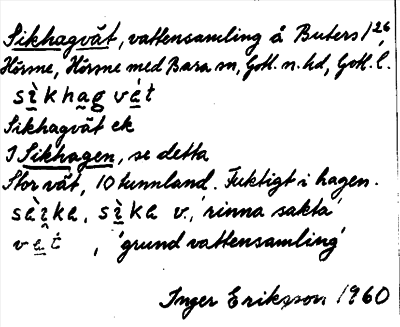 Sikhagvät, vattensamling å Buters 1/26
Hörsne, Hörsne med Bara sn, Gotl. n. hd, Gotl. l.
sìkhag vét
Sikhagvät ek
I Sikhagen, se detta
Stor vät, 10 tunnland. Fuktigt i hagen.
sàika, sìka v., 'rinna sakta'
vat, 'grund vattensamling'
Inger Eriksson 1960